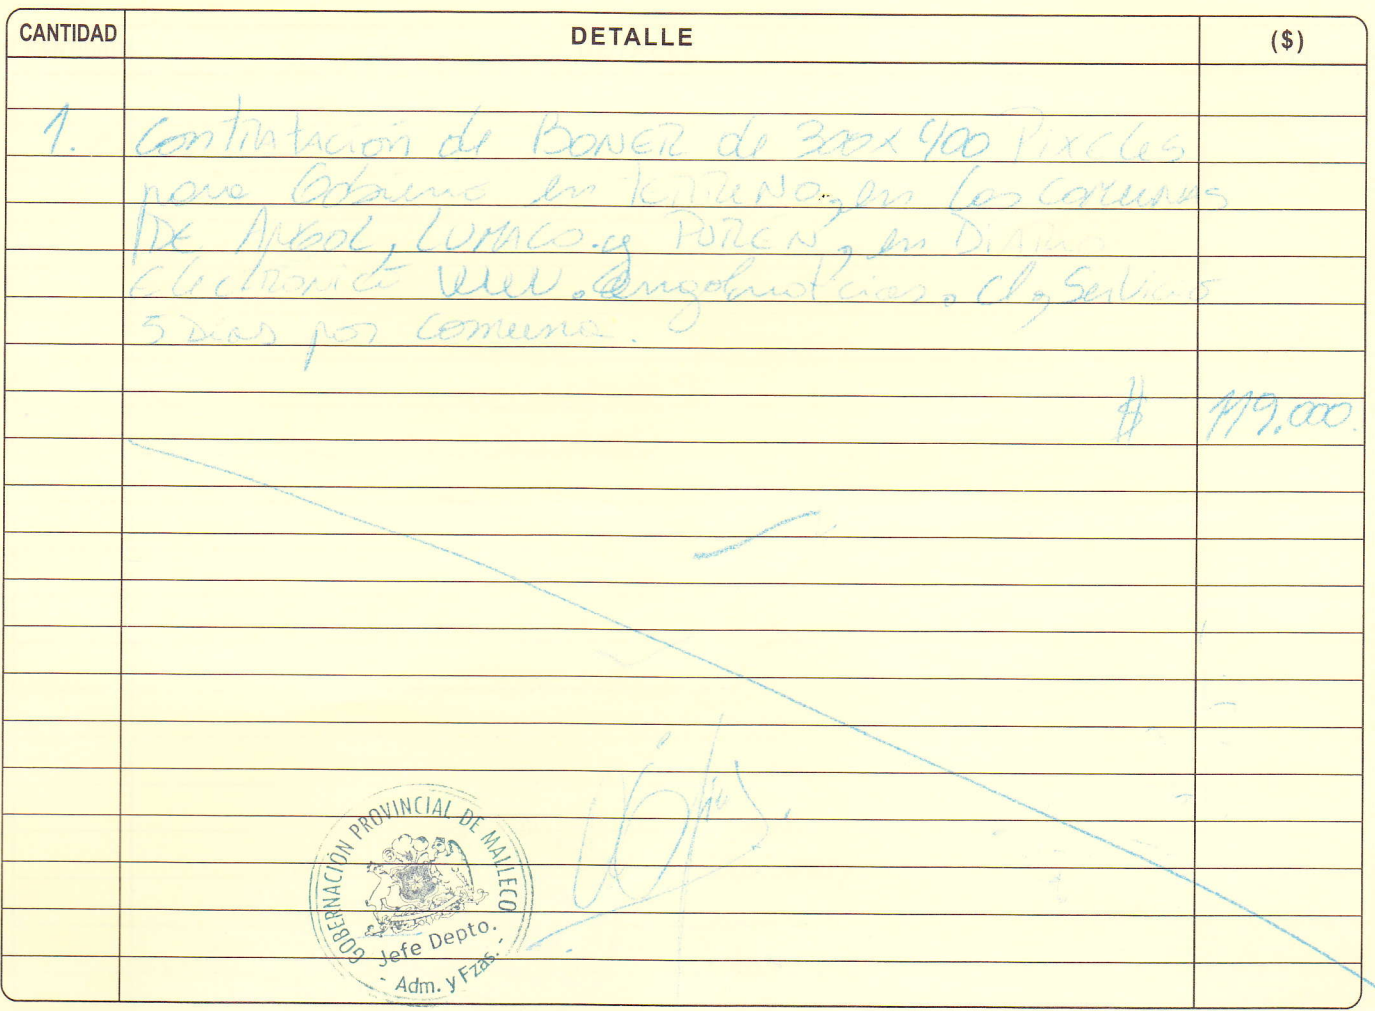 CANTIDAD DETALLE ($)
1. Contratación de BONER de 300x400 Pixeles
para Gobierno en TERRENO, en las comunas
DE ANGOL, LUMACO y PUREN, en DIARIO
Electronico www.angolnoticias.cl, Servicio
5 Dias por comuna.
$ 119.000.
GOBERNACIÓN PROVINCIAL DE MALLECO
Jefe Depto.
- Adm. y Fzas. -